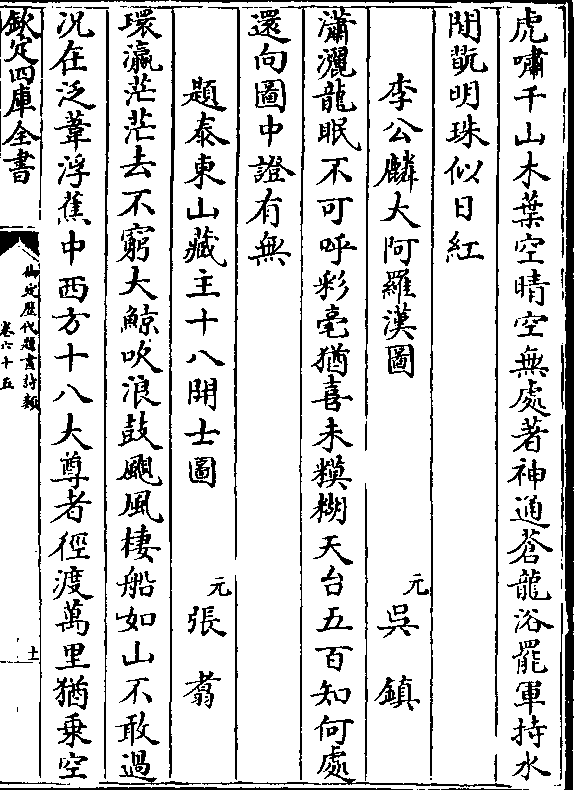 虎嘯千山木葉空晴空無處著神通蒼龍浴罷軍持水
閒翫明珠似日紅
李公麟大阿羅漢圖　元吳鎮
瀟灑龍眠不可呼彩毫猶喜未糢糊天台五百知何處
還向圖中證有無
題泰東山藏主十八開士圖　元張翥
環瀛茫茫去不窮大鯨吹浪鼓颶風棲船如山不敢過
況在泛葦浮蕉中西方十八大尊者徑渡萬里猶乗空
欽定四庫全書
御定歷代題畫詩類
卷六十五
十